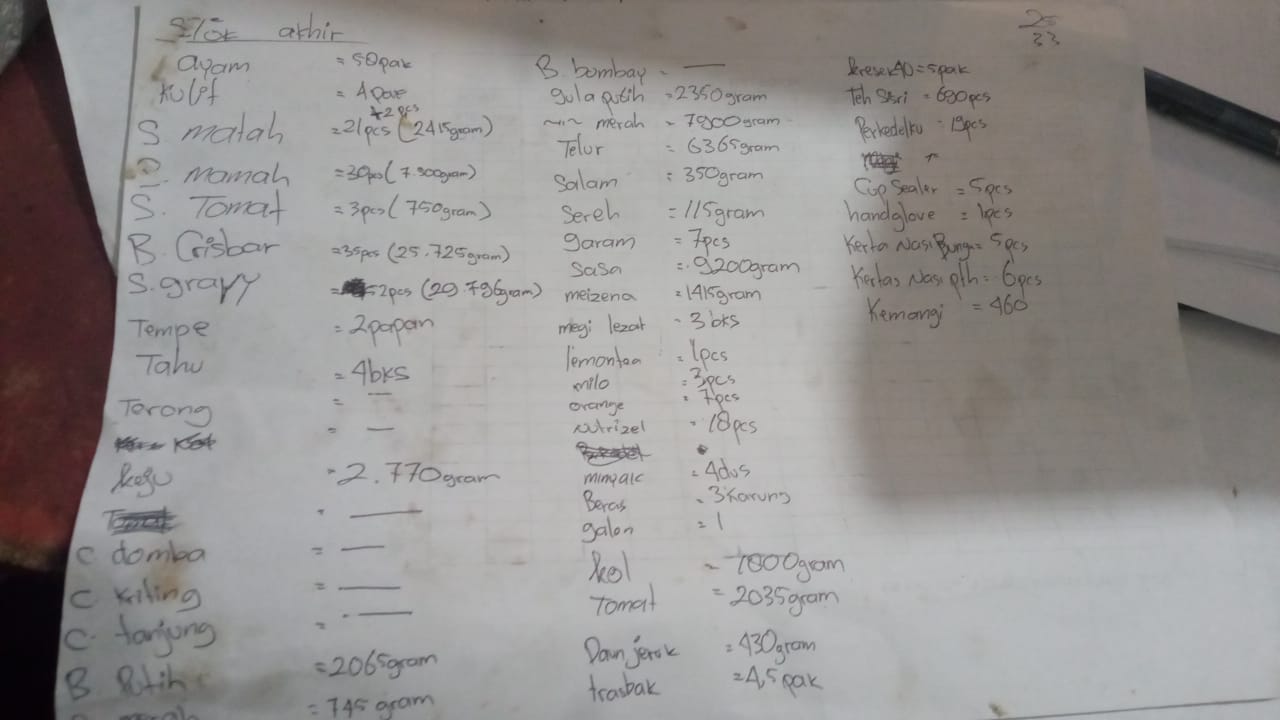 Stok akhir
ayam = 50pak
Kulit = 4pak
+2pcs
S matah = 21pcs (2415gram)
S. mamah = 30pcs (7.900gram)
S. Tomat = 3pcs (750gram)
B. Crisbar = 35pcs (25.725gram)
S. gravy = 52pcs (29.796gram)
Tempe = 2papan
Tahu = 4bks
Terong = —
= —
keju = 2.770gram
= —
C domba = —
C Kriting = —
C. tanjung = —
B Putih = 2065gram
= 745 gram
B. bombay = —
gula putih = 2350gram
~~ merah = 7900gram
Telur = 6365gram
Salam = 350gram
Sereh = 115gram
garam = 7pcs
Sasa = 9200gram
meizena = 1415gram
megi lezat = 3 bks
lemontea = 1pcs
milo = 3pcs
orange = 7pcs
nutrizel = 18pcs
minyak = 4dus
Beras = 3karung
galon = 1
kol = 7000gram
Tomat = 2035gram
Daun jeruk = 430gram
trasbak = 4,5 pak
25
kresek 40 = 5pak
Teh Sisri = 690pcs
Perkedelku = 19pcs
Cup Sealer = 5pcs
handglove = 1pcs
Kerta Nasi Bunga = 5pcs
Kertas Nasi pth = 6pcs
Kemangi = 460